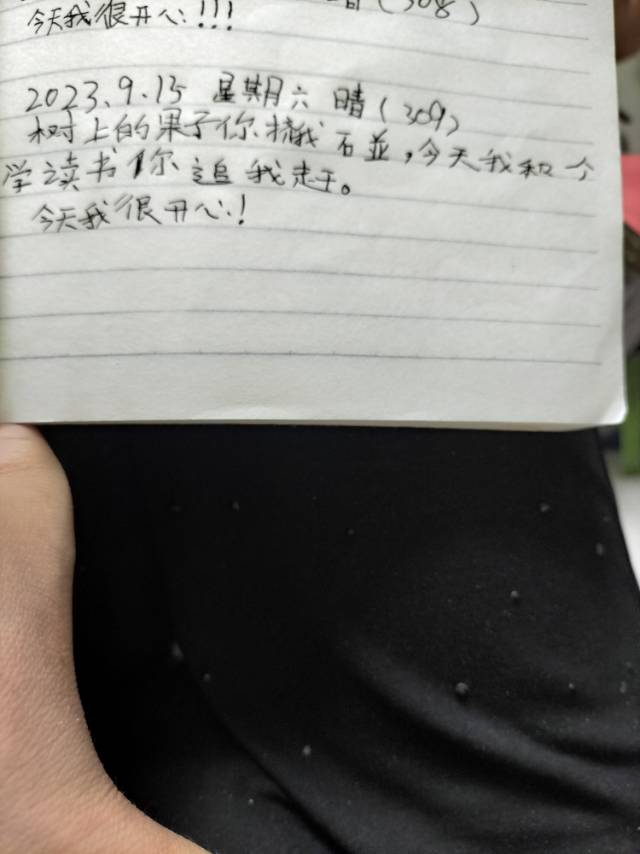 今天我很开心!!!
(308)
2023.9.15 星期六 晴(309)
树上的果子你我石並,今天我和个
学读书你追我赶。
今天我很开心!